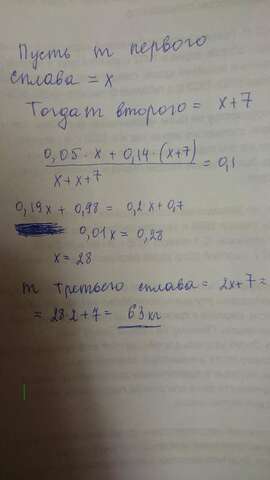 Пусть m первого
сплава = x
Тогда m второго = x+7
0,05·x + 0,14·(x+7)
x+x+7
= 0,1
0,19x + 0,98 = 0,2x+0,7
0,01x = 0,28
x = 28
m третьего сплава = 2x+7 =
= 28·2+7 = 63 кг